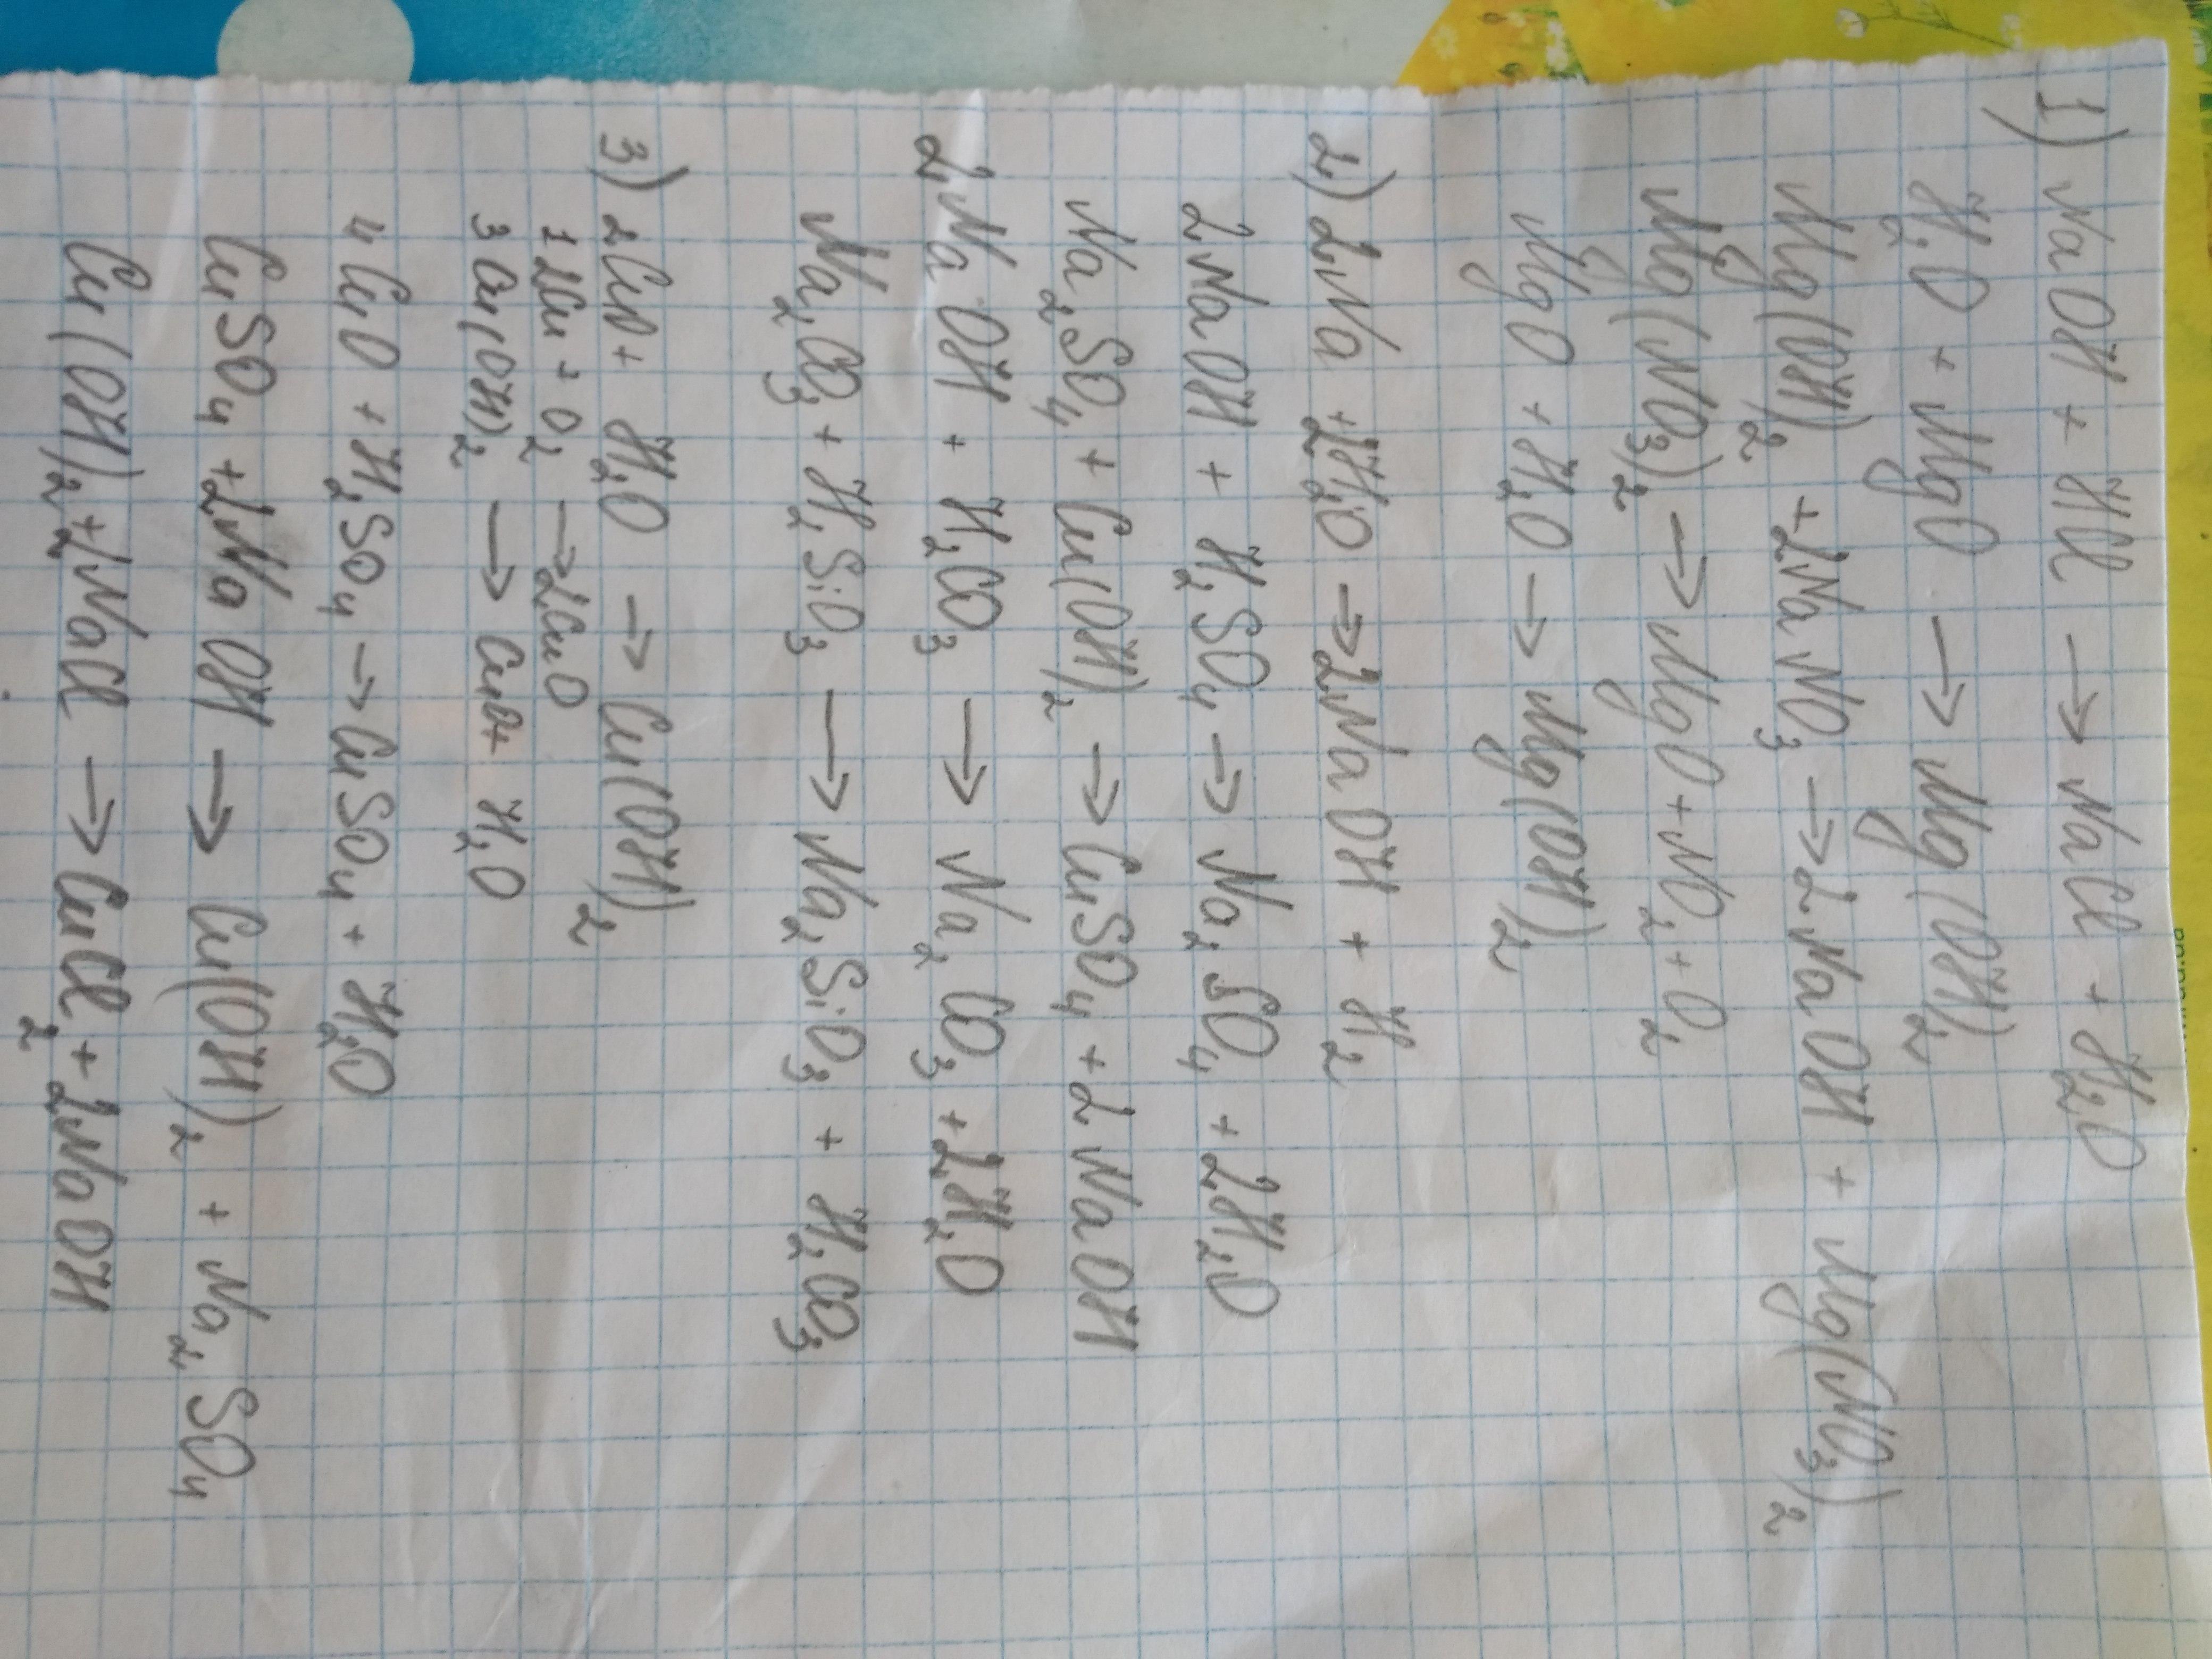 1) NaOH + HCl → NaCl + H₂O
H₂O + MgO → Mg(OH)₂
Mg(OH)₂ + 2NaNO₃ → 2NaOH + Mg(NO₃)₂
Mg(NO₃)₂ → MgO + NO₂ + O₂
MgO + H₂O → Mg(OH)₂
2) 2Na + 2H₂O → 2NaOH + H₂
2NaOH + H₂SO₄ → Na₂SO₄ + 2H₂O
Na₂SO₄ + Cu(OH)₂ → CuSO₄ + 2NaOH
2NaOH + H₂CO₃ → Na₂CO₃ + 2H₂O
Na₂CO₃ + H₂SiO₃ → Na₂SiO₃ + H₂CO₃
3) 2 CuO + H₂O → Cu(OH)₂
1 2Cu + O₂ → 2CuO
3 Cu(OH)₂ → CuO + H₂O
4 CuO + H₂SO₄ → CuSO₄ + H₂O
CuSO₄ + 2NaOH → Cu(OH)₂ + Na₂SO₄
Cu(OH)₂ + 2NaCl → CuCl₂ + 2NaOH